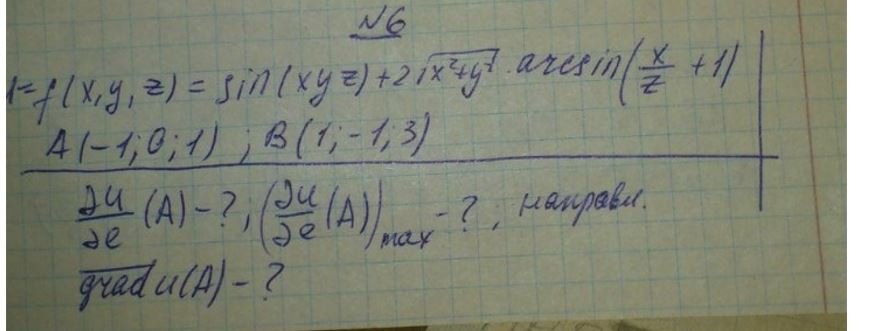 №6
u=f(x,y,z)=sin(xyz)+2√x²+y² · arcsin(x/z +1)
A(-1;0;1) ; B(1;-1;3)
∂u/∂e (A) - ? ; (∂u/∂e (A))max - ? ; направл.
grad u(A) - ?